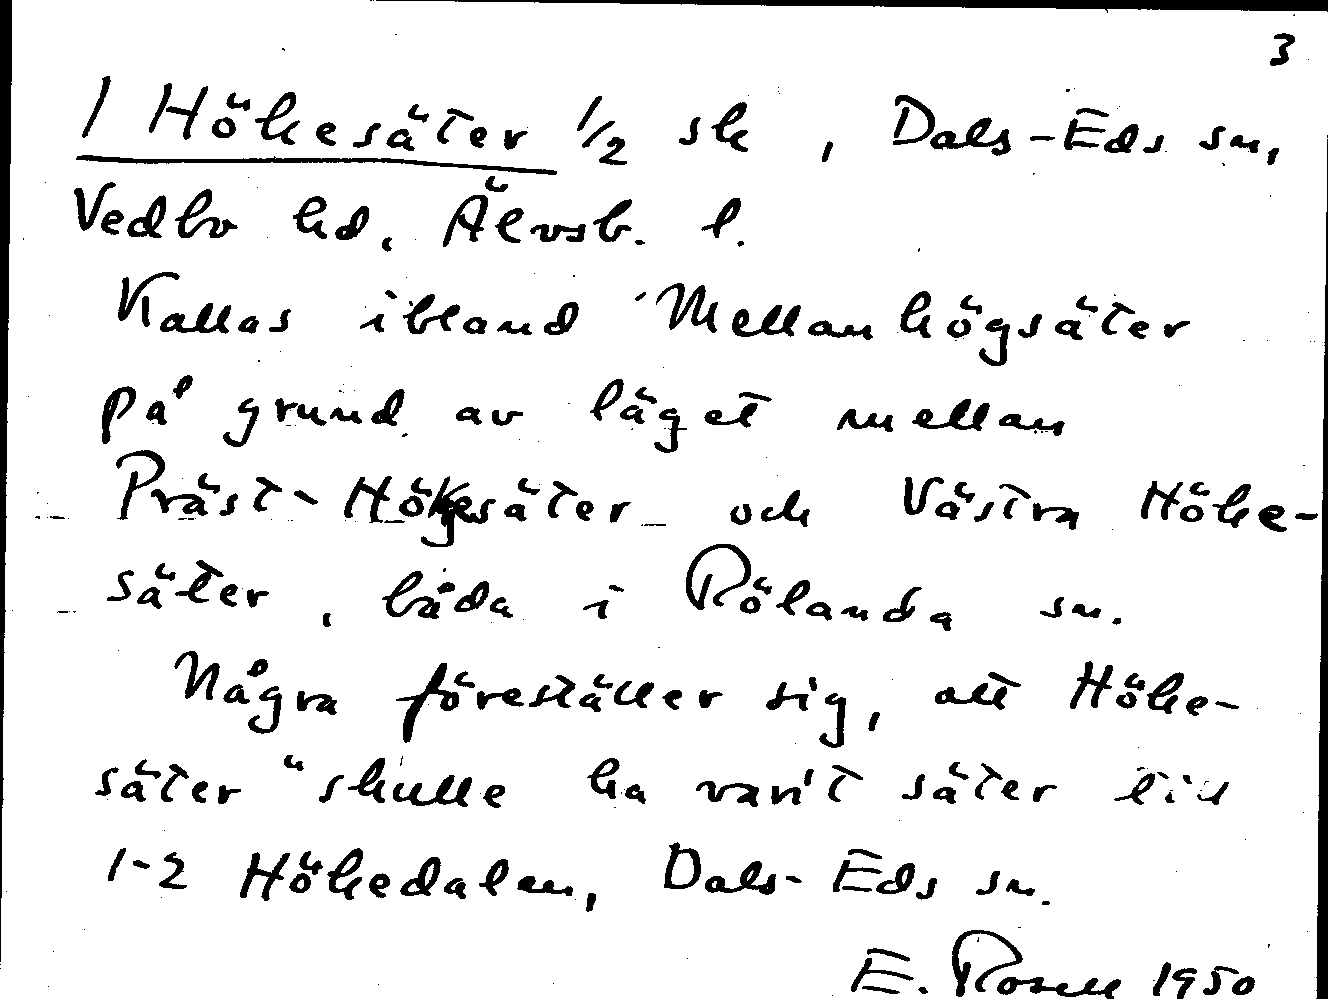 3
1 Hökesäter 1/2 sk , Dals-Eds sn,
Vedbo hd. Älvsb. l.
Kallas ibland Mellanhögsäter
på grund av läget mellan
Präst-Hökesäter och Västra Höke-
säter, båda i Rölanda sn.
Några föreställer sig, att Höke-
säter "skulle ha vari't säter till
1-2 Hökedalen, Dals-Eds sn.
E. Rosell 1950